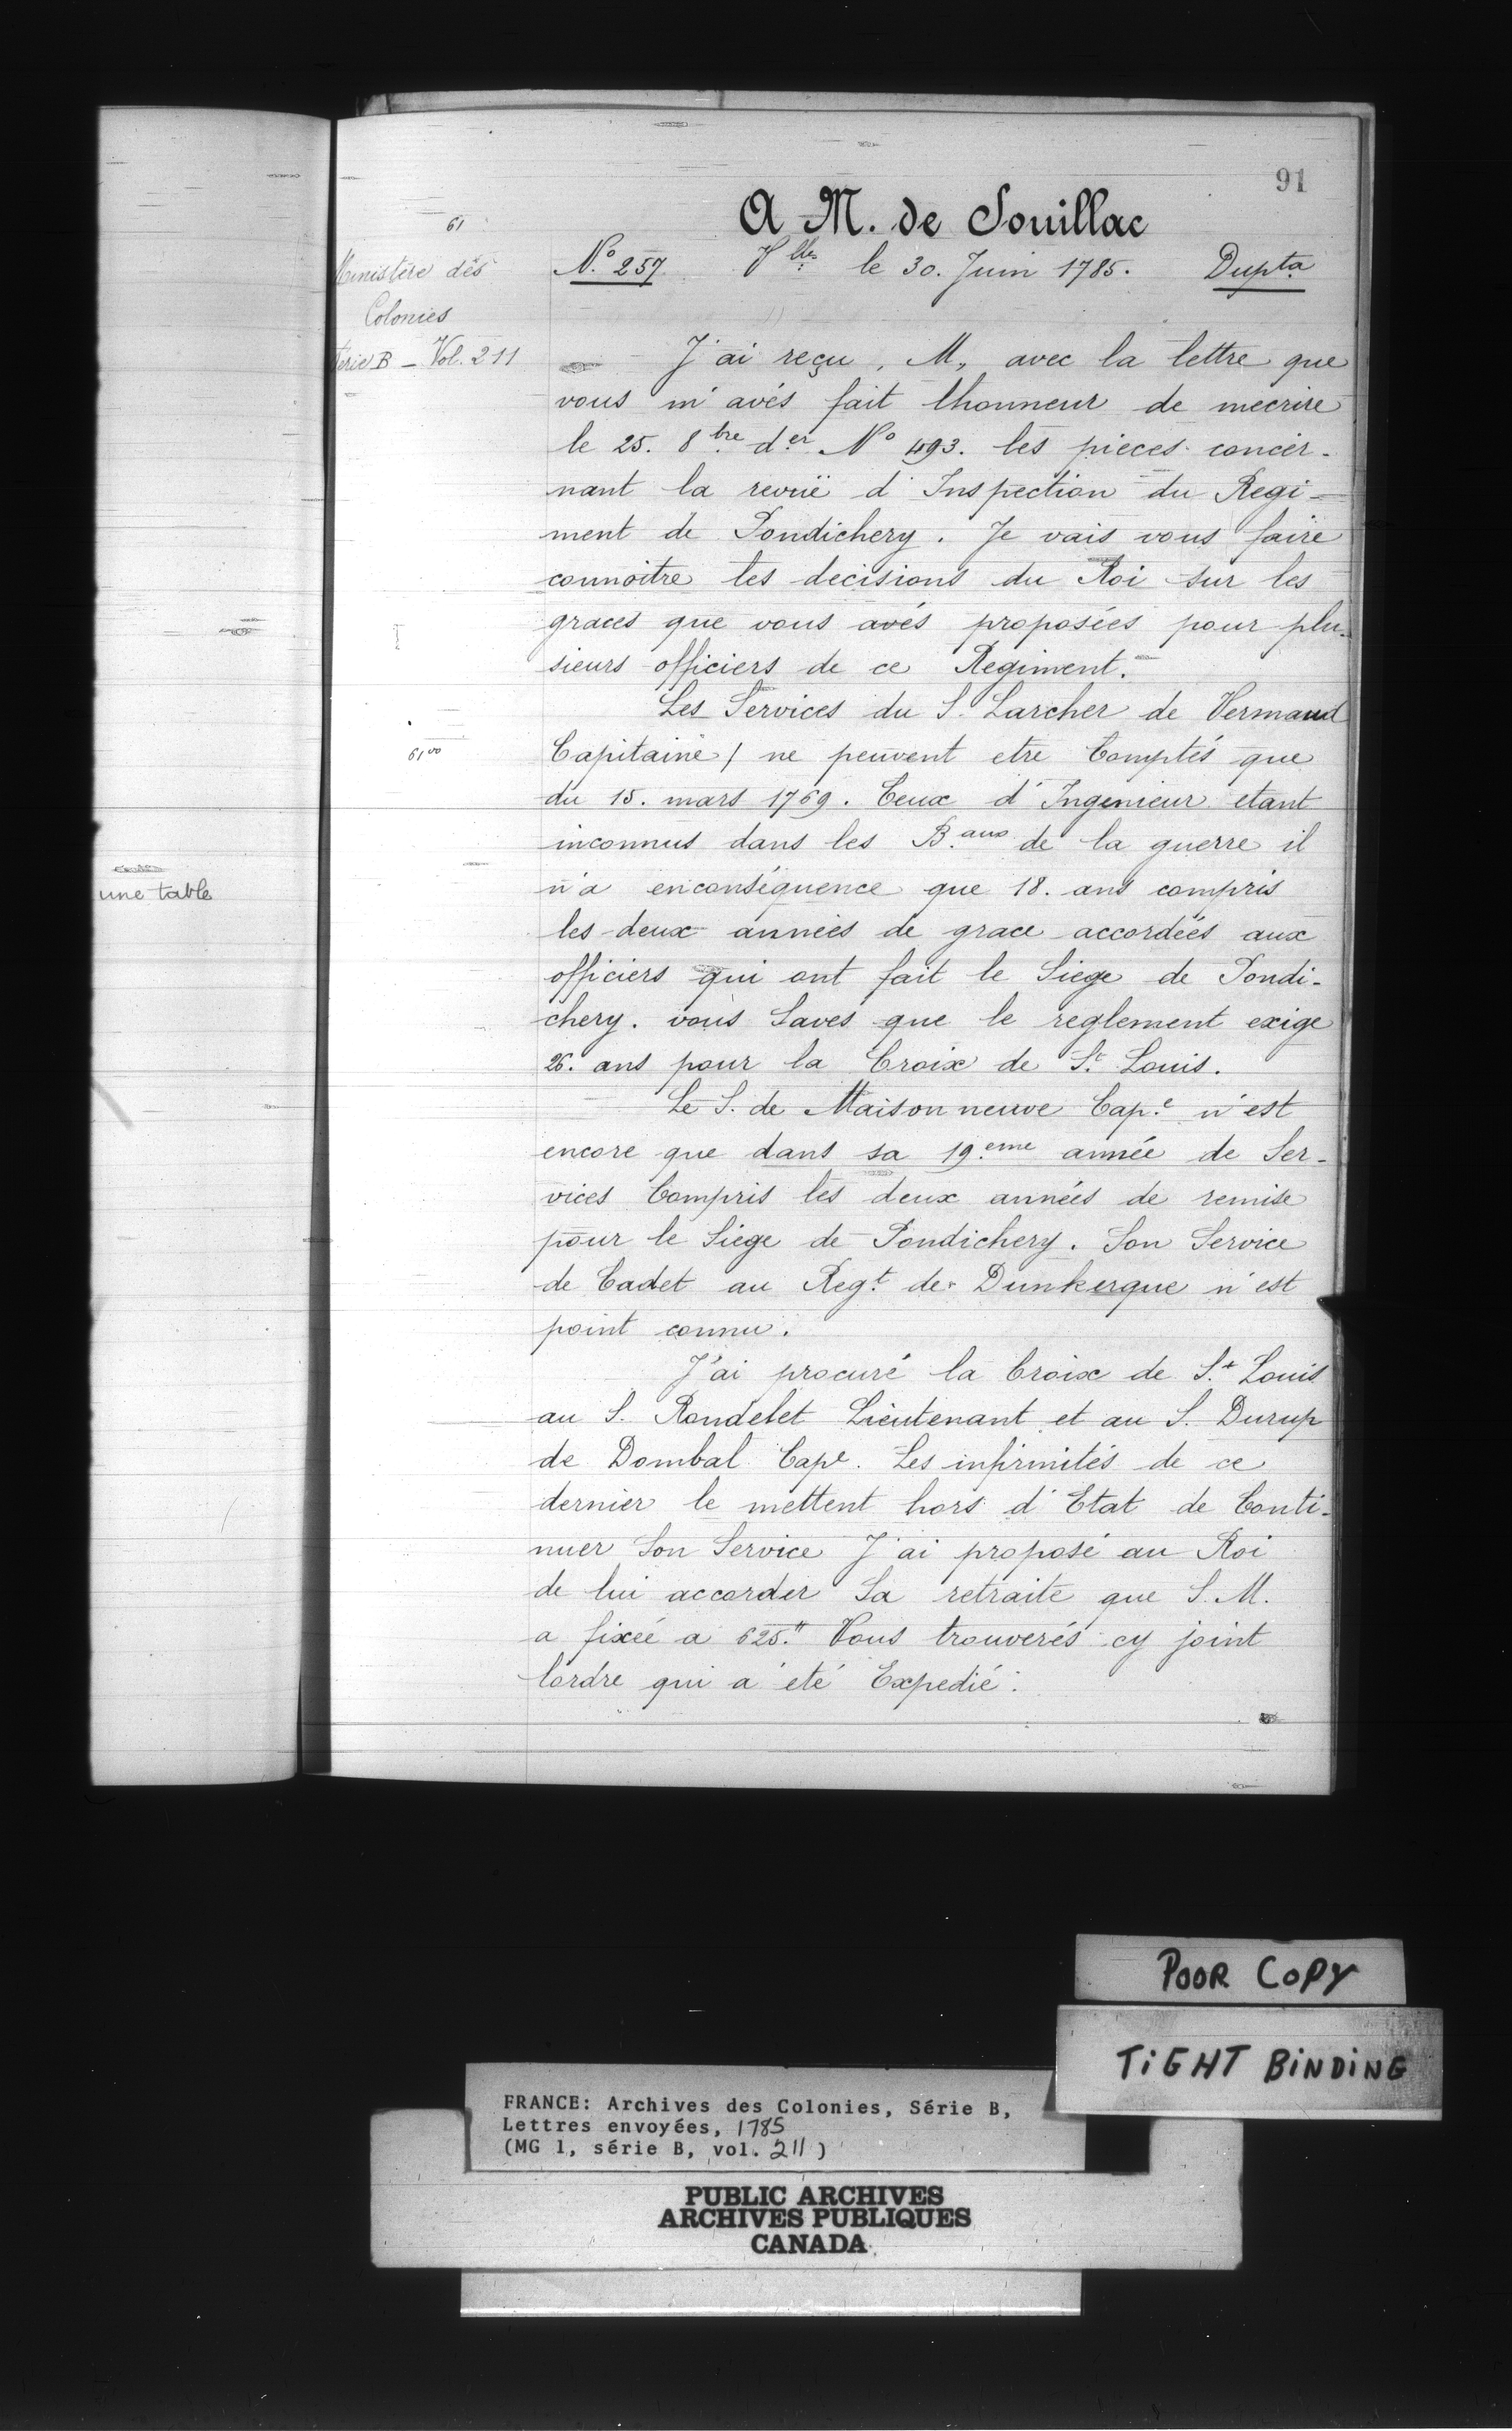 91
A M. de Souillac
61
Ministère des
Colonies
Série B - Vol. 211
N.o 257. V.lles le 30. Juin 1785. Dupta
J'ai reçu, M, avec la lettre que
vous m'avés fait lhonneur de mecrire
le 25. 8.bre d.er No 493. les pieces concer-
nant la revuë d'Inspection du Regi-
ment de Pondichery. Je vais vous faire
connoitre les decisions du Roi sur les
graces que vous avés proposées pour plu-
sieurs officiers de ce Regiment.
Les Services du S. Larcher de Vermand
61 vo
Capitaine / ne peuvent etre Comptés que
du 15. mars 1769. Ceux d'Ingenieur etant
inconnus dans les B.aux de la guerre il
n'a enconséquence que 18. ans compris
les deux années de grace accordées aux
officiers qui ont fait le Siege de Pondi-
chery. vous Saves que le reglement exige
26. ans pour la Croix de S.t Louis.
une table
Le S. de Maison neuve Cap.e n'est
encore que dans sa 19.eme année de Ser-
vices Compris les deux années de remise
pour le Siege de Pondichery. Son Service
de Cadet au Reg.t de Dunkerque n'est
point connu.
J'ai procuré la Croix de S.t Louis
au S. Rondelet Lieutenant et au S. Durup
de Dombal Cape. Les infirmités de ce
dernier le mettent hors d'Etat de Conti-
nuer Son Service J'ai proposé au Roi
de lui accorder Sa retraite que S. M.
a fixée a 625.tt Vous trouverés cy joint
lordre qui a été Expedié.
POOR COPY
TIGHT BINDING
FRANCE: Archives des Colonies, Série B,
Lettres envoyées, 1785
(MG 1, série B, vol. 211)
PUBLIC ARCHIVES
ARCHIVES PUBLIQUES
CANADA